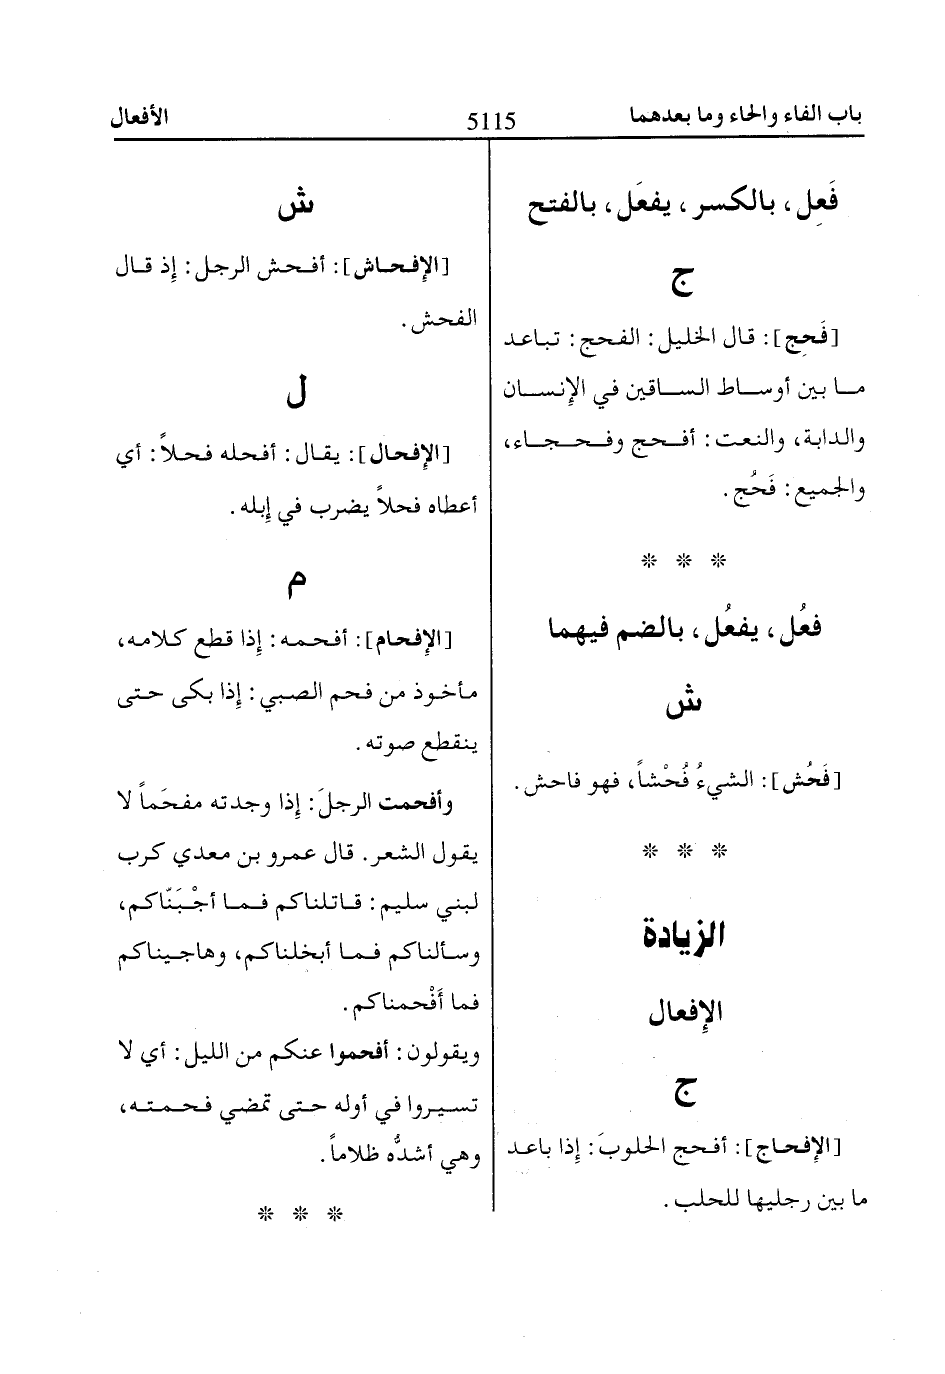 باب الفاء والحاء وما بعدهما
5115
الأفعال
فَعِل، بالكسر، يفعَل، بالفتح
ج
[فَحِج]: قال الخليل: الفحج: تباعد
ما بين أوساط الساقين في الإنسان
والدابة، والنعت: أفحج وفحجاء،
والجميع: فَحُج.
* * *
فعُل، يفعُل، بالضم فيهما
ش
[فَحُش]: الشيءُ فُحْشاً، فهو فاحش.
* * *
الزيادة
الإفعال
ج
[الإفحاج]: أفحج الحلوبَ: إذا باعد
ما بين رجليها للحلب.
ش
[الإفحاش]: أفحش الرجل: إذ قال
الفحش.
ل
[الإفحال]: يقال: أفحله فحلاً: أي
أعطاه فحلاً يضرب في إبله.
م
[الإفحام]: أفحمه: إذا قطع كلامه،
مأخوذ من فحم الصبي: إذا بكى حتى
ينقطع صوته.
وأفحمت الرجلَ: إذا وجدته مفحَماً لا
يقول الشعر. قال عمرو بن معدي كرب
لبني سليم: قاتلناكم فما أجْبَنّاكم،
وسألناكم فما أبخلناكم، وهاجيناكم
فما أَفْحمناكم.
ويقولون: أفحموا عنكم من الليل: أي لا
تسيروا في أوله حتى تمضي فحمته،
وهي أشدُّه ظلاماً.
* * *